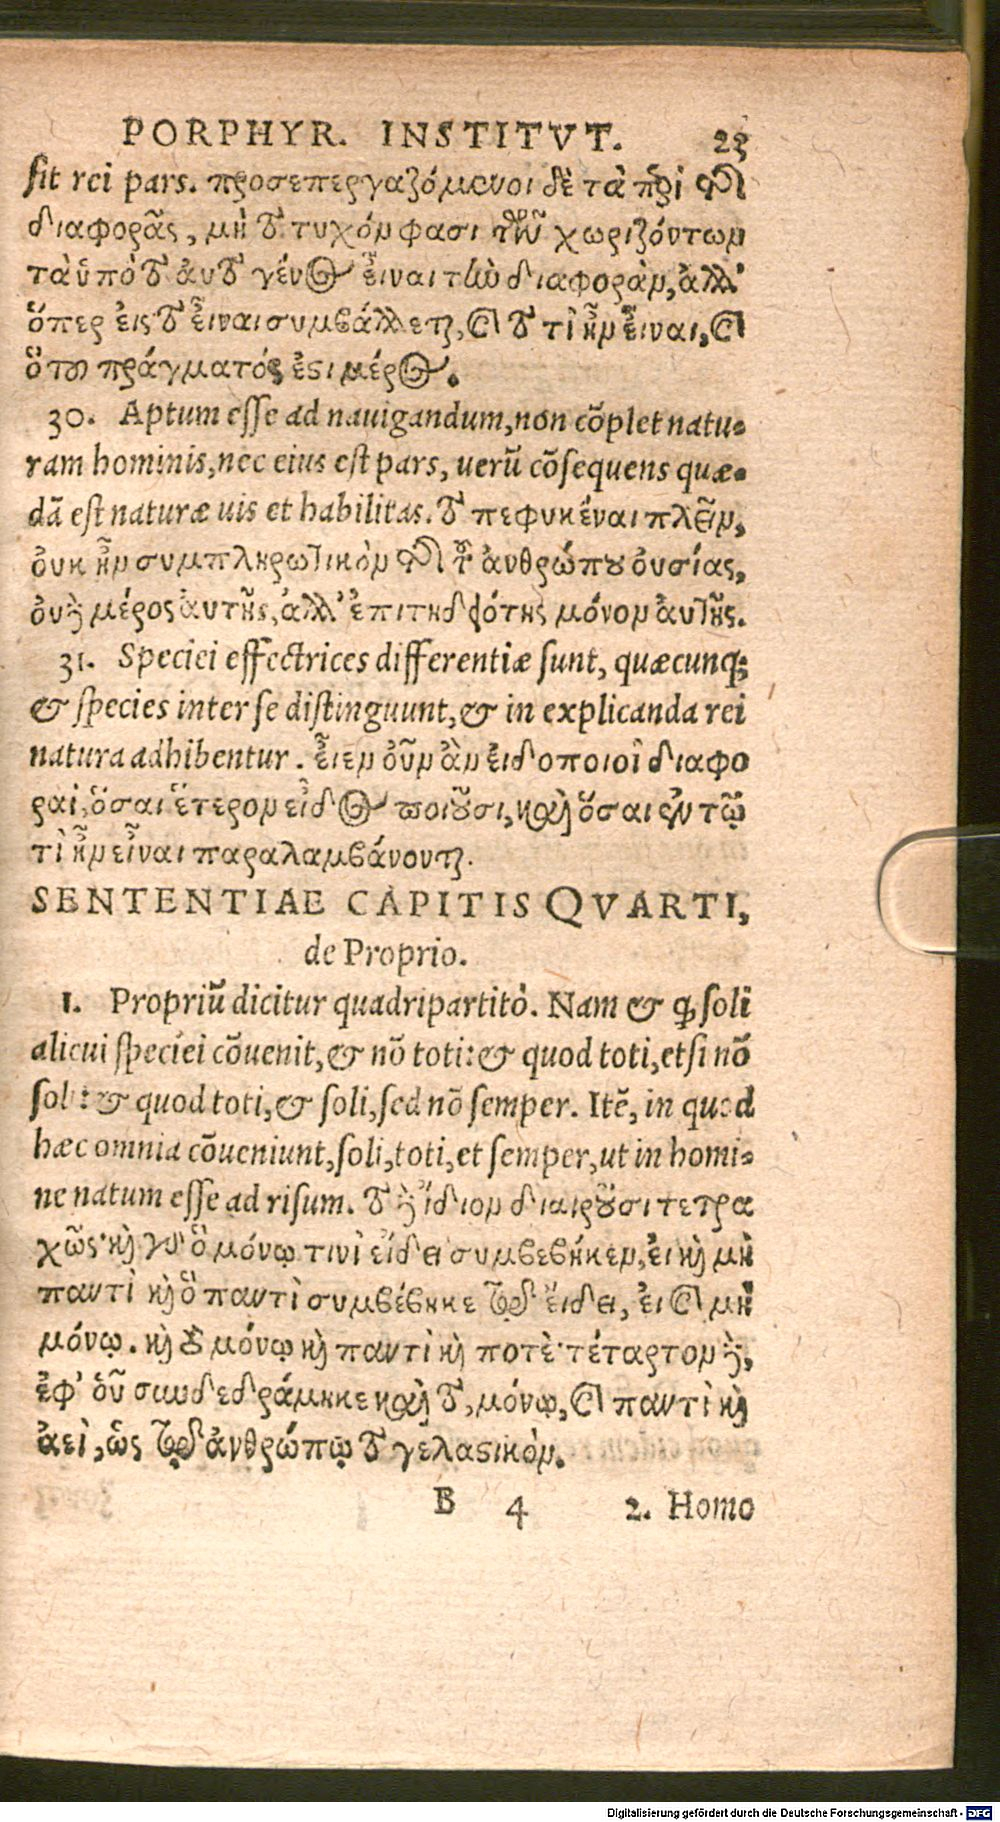 PORPHYR. INSTITVT. 23
sit rei pars. προσεπεργαζόμενοι δὲ τὰ περὶ τῆς
διαφορᾶς, μὴ τὸ τυχόν φασι τῶν χωριζόντων
τὰ ὑπὸ τὸ ἀυτὸ γένος ἶειναι τὴν διαφορὰν, ἀλλ'
ὅπερ ἐις τὸ ἶειναι συμβάλλεται, καὶ τὸ τὶ ἦν ἶειναι, καὶ
ὅ του πράγματός ἐστι μέρος.
30. Aptum esse ad nauigandum, non cōplet natu-
ram hominis, nec eius est pars, uerū cōsequens quæ-
dā est naturæ uis et habilitas. τὸ πεφυκέναι πλεῖν,
ὀυκ ἦν συμπληρωτικὸν τῆς τοῦ ἀνθρώπου ὀυσίας,
ὀυδὲ μέρος ἀυτῆς, ἀλλ' ἐπιτηδειότης μόνον ἀυτῆς.
31. Speciei effectrices differentiæ sunt, quæcunq;
& species inter se distinguunt, & in explicanda rei
natura adhibentur. ἶειεν ὀῦν ἂν ἐιδοποιοὶ διαφο
ραὶ, ὅσαι ἕτερον εἶδος ποιοῦσι, καὶ ὅσαι ἐν τῷ
τὶ ἦν εἶναι παραλαμβάνονται.
SENTENTIAE CAPITIS QVARTI,
de Proprio.
1. Propriū dicitur quadripartitò. Nam & qđ soli
alicui speciei cōuenit, & nō toti: & quod toti, etsi nō
soli: & quod toti, & soli, sed nō semper. Itē, in quod
hæc omnia cōueniunt, soli, toti, et semper, ut in homi-
ne natum esse ad risum. τὸ δὲ ἴδιον διαιροῦσι τετρα
χῶς· καὶ γὰρ ὃ μόνῳ τινὶ εἴδει συμβεβήκεν, ἐι καὶ μὴ
παντὶ καὶ ὃ παντὶ συμβέβηκε τῷ ἔιδει, ἐι καὶ μὴ
μόνῳ. καὶ ὃ μόνῳ καὶ παντὶ καὶ ποτὲ· τέταρτον δὲ,
ἐφ' ὁῦ συνδεδράμηκε καὶ τὸ, μόνῳ, καὶ παντὶ καὶ
ἀεὶ, ὡς τῷ ἀνθρώπῳ τὸ γελαστικὸν.
B 4 2. Homo
Digitalisierung gefördert durch die Deutsche Forschungsgemeinschaft - DFG